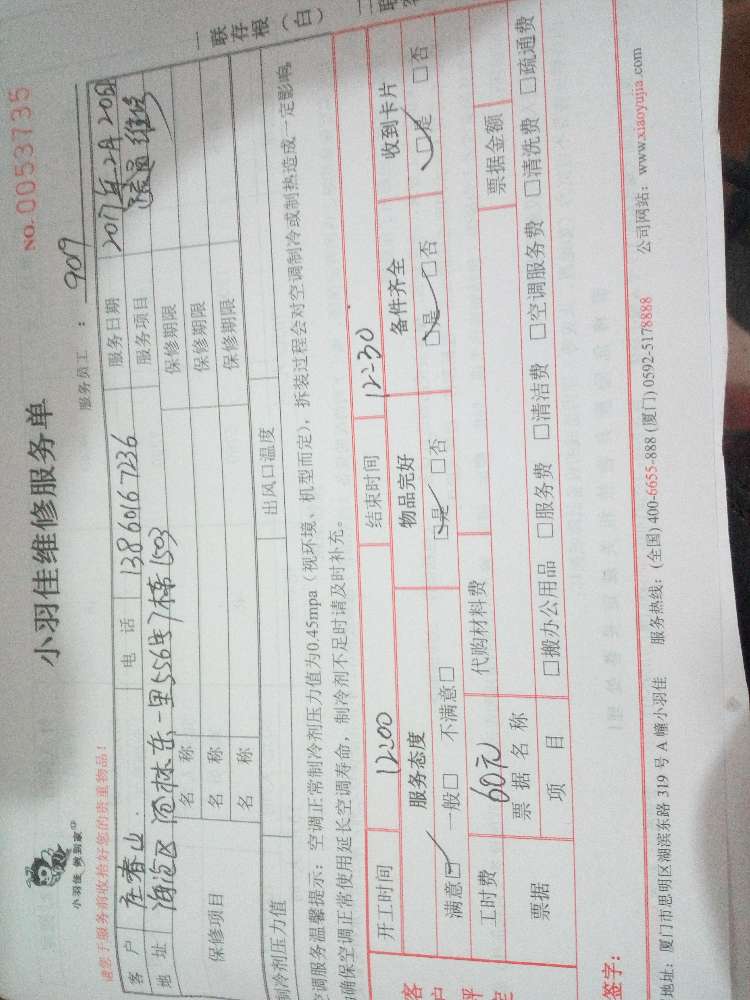 NO. 0053735
小羽佳 做到家
小羽佳维修服务单
服务员工：909
请您于服务前收拾好您的贵重物品！
客户 庄春山 电话 13860167236 服务日期 2017年2月20日
地址 海沧区 东一里556号7栋1503 服务项目 维修
保修项目 名称 保修期限
名称 保修期限
名称 保修期限
制冷剂压力值 出风口温度
空调服务温馨提示：空调正常制冷剂压力值为0.45mpa（视环境、机型而定），拆装过程会对空调制冷或制热造成一定影响。
确保空调正常使用延长空调寿命，制冷剂不足时请及时补充。
一联存根（白）
开工时间 12:00 结束时间 12:30
服务态度 物品完好 备件齐全 收到卡片
满意☑ 一般□ 不满意□ ☑是 □否 ☑是 □否 ☑是 □否
工时费 60元 代购材料费
票据 票据名称 票据金额
项目 □搬办公用品 □服务费 □清洁费 □空调服务费 □清洗费 □疏通费
签字：
地址：厦门市思明区湖滨东路 319 号 A 幢小羽佳 服务热线：(全国) 400-6655-888 (厦门) 0592-5178888 公司网站：www.xiaoyujia.com